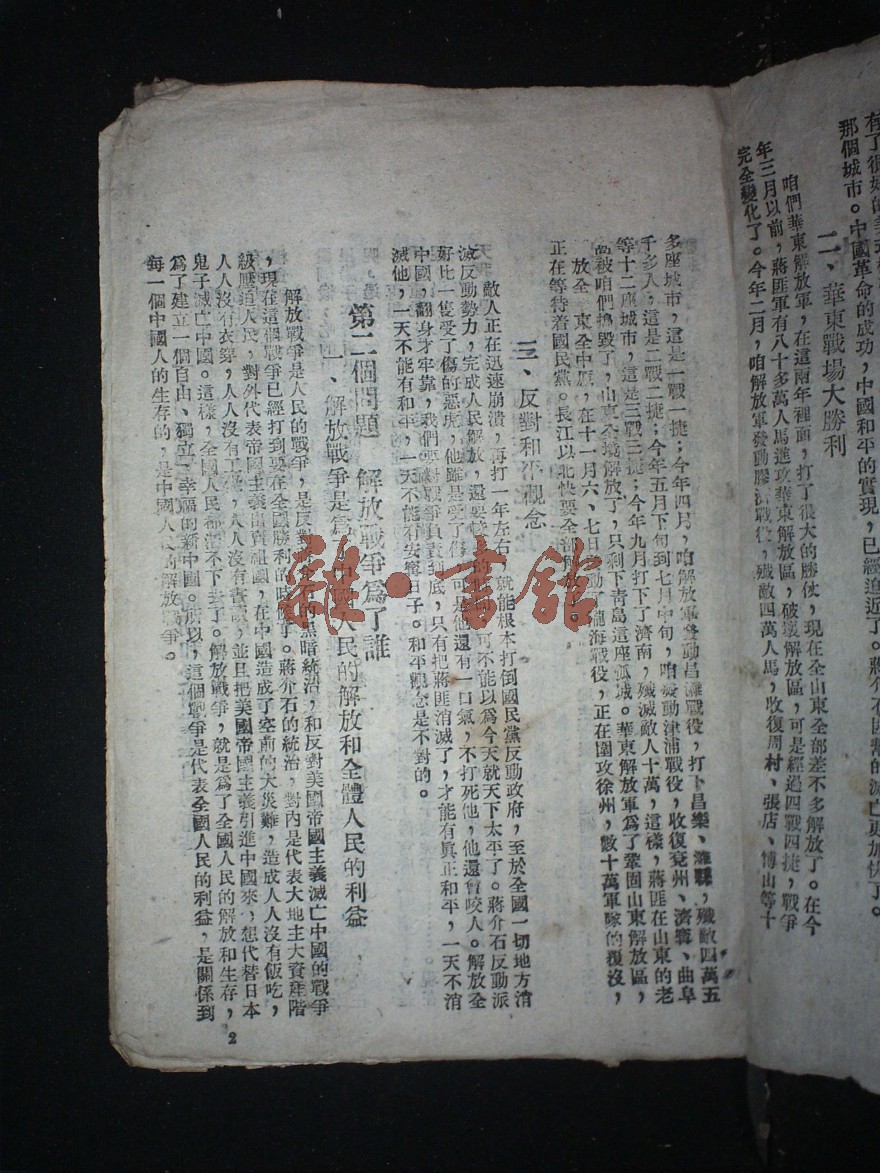 有了很好的
那個城市。中國革命的成功，中國和平的實現，已經迫近了。蔣介石匪幫的滅亡更加快了。
二、華東戰場大勝利
咱們華東解放軍，在這兩年裡面，打了很大的勝仗，現在全山東全部差不多解放了。在今
年三月以前，蔣匪軍有八十多萬人馬進攻華東解放區，破壞解放區，可是經過四戰四捷，戰爭
完全變化了。今年二月，咱解放軍發動膠濟戰役，殲敵四萬人馬，收復周村、張店、博山等十
多座城市，這是一戰一捷；今年四月，咱解放軍發動昌濰戰役，打下昌樂、濰縣，殲敵四萬五
千多人，這是二戰二捷；今年五月下旬到七月中旬，咱發動津浦戰役，收復兗州、濟寧、曲阜
等十二座城市，這是三戰三捷；今年九月打下了濟南，殲滅敵人十萬，這樣，蔣匪在山東的老
窩被咱們搗毀了，山東全境解放了，只剩下青島這座孤城。華東解放軍爲了鞏固山東解放區，
解放全東全中原，在十一月六、七日發動了隴海戰役，正在圍攻徐州，數十萬軍隊的復沒，
正在等待着國民黨。長江以北快要全部解放。
三、反對和平觀念
敵人正在迅速崩潰，再打一年左右，就能根本打倒國民黨反動政府，至於全國一切地方消
滅反動勢力，完成人民解放，還要較長的時間，可不能以爲今天就天下太平了。蔣介石反動派
好比一隻受了傷的惡虎，他雖是受了傷，可是他還有一口氣，不打死他，他還會咬人。解放全
中國，翻身才牢靠，我們要對戰爭負責到底，只有把蔣匪消滅了，才能有眞正和平，一天不消
滅他，一天不能有和平，一天不能有安寧日子。和平觀念是不對的。
第二個問題　解放戰爭爲了誰
一、解放戰爭是爲了中國人民的解放和全體人民的利益
解放戰爭是人民的戰爭，是反對蔣介石的黑暗統治，和反對美國帝國主義滅亡中國的戰爭
，現在這個戰爭已經打到要在全國勝利的時候了。蔣介石的統治，對內是代表大地主大資產階
級壓迫人民，對外代表帝國主義出賣祖國，在中國造成了空前的大災難，造成人人沒有飯吃，
人人沒有衣穿，人人沒有工做，人人沒有書讀，並且把美國帝國主義引進中國來，想代替日本
鬼子滅亡中國。這樣，全國人民都活不下去了。解放戰爭，就是爲了全國人民的解放和生存，
爲了建立一個自由、獨立、幸福的新中國。所以，這個戰爭是代表全國人民的利益，是關係到
每一個中國人的生存的，是中國人民的解放戰爭。
2
雜·書館